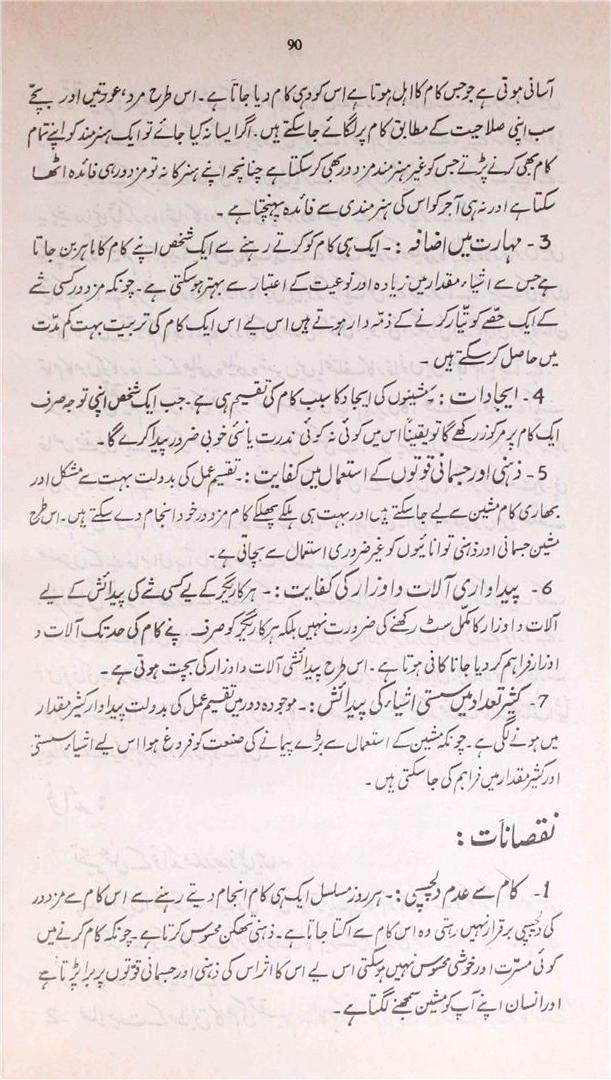 90
آسانی ہوتی ہے جو جس کام کا اہل ہوتا ہے اس کو وہی کام دیا جاتا ہے۔ اس طرح مرد، عورتیں اور بچّے
سب اپنی صلاحیت کے مطابق کام پر لگائے جا سکتے ہیں۔ اگر ایسا نہ کیا جائے تو ایک ہنر مند کو اپنے تمام
کام بھی کرنے پڑتے جس کو غیر ہنر مند مزدور بھی کر سکتا ہے چنانچہ اپنے ہنر کا نہ تو مزدور ہی فائدہ اٹھا
سکتا ہے اور نہ ہی آجر کو اس کی ہنر مندی سے فائدہ پہنچتا ہے۔
3 - مہارت میں اضافہ :- ایک ہی کام کو کرتے رہنے سے ایک شخص اپنے کام کا ماہر بن جاتا
ہے جس سے اشیاء مقدار میں زیادہ اور نوعیت کے اعتبار سے بہتر ہو سکتی ہے۔ چونکہ مزدور کسی شے
کے ایک حصّے کو تیّار کرنے کے ذمّہ دار ہوتے ہیں اس لیے اس ایک کام کی تربیت بہت کم مدّت
میں حاصل کر سکتے ہیں۔
4 - ایجادات : مشینوں کی ایجاد کا سبب کام کی تقسیم ہی ہے۔ جب ایک شخص اپنی توجہ صرف
ایک کام پر مرکوز رکھے گا تو یقیناً اس میں کوئی نہ کوئی ندرت یا نئی خوبی ضرور پیدا کرے گا۔
5 - ذہنی اور جسمانی قوتوں کے استعمال میں کفایت :- تقسیم عمل کی بدولت بہت سے مشکل اور
بھاری کام مشین سے لیے جا سکتے ہیں اور بہت ہی ہلکے پھلکے کام مزدور خود انجام دے سکتے ہیں۔ اس طرح
مشین جسمانی اور ذہنی توانائیوں کو غیر ضروری استعمال سے بچاتی ہے۔
6 - پیداواری آلات و اوزار کی کفایت :- ہر کاریگر کے لیے کسی شے کی پیدائش کے لیے
آلات و اوزار کا مکمل سٹ رکھنے کی ضرورت نہیں بلکہ ہر کاریگر کو صرف پنے کام کی حد تک آلات و
اوزار فراہم کر دیا جانا کافی ہوتا ہے۔ اس طرح پیدائشی آلات و اوزار کی بچت ہوتی ہے۔
7 - کثیر تعداد میں سستی اشیاء کی پیدائش :- موجودہ دور میں تقسیم عمل کی بدولت پیداوار کثیر مقدار
میں ہونے لگی ہے۔ چونکہ مشین کے استعمال سے بڑے پیمانے کی صنعت کو فروغ ہوا اس لیے اشیاء سستی
اور کثیر مقدار میں فراہم کی جا سکتی ہیں۔
نقصانات :
1- کام سے عدم دلچسپی :- ہر روز مسلسل ایک ہی کام انجام دیتے رہنے سے اس کام سے مزدور
کی دلچسپی برقرار نہیں رہتی وہ اس کام سے اکتا جاتا ہے۔ ذہنی تھکن محسوس کرتا ہے۔ چونکہ کام کرنے میں
کوئی مسرّت اور خوشی محسوس نہیں ہو سکتی اس لیے اس کا اثر اس کی ذہنی اور جسمانی قوتوں پر برا پڑتا ہے
اور انسان اپنے آپ کو مشین سمجھنے لگتا ہے۔